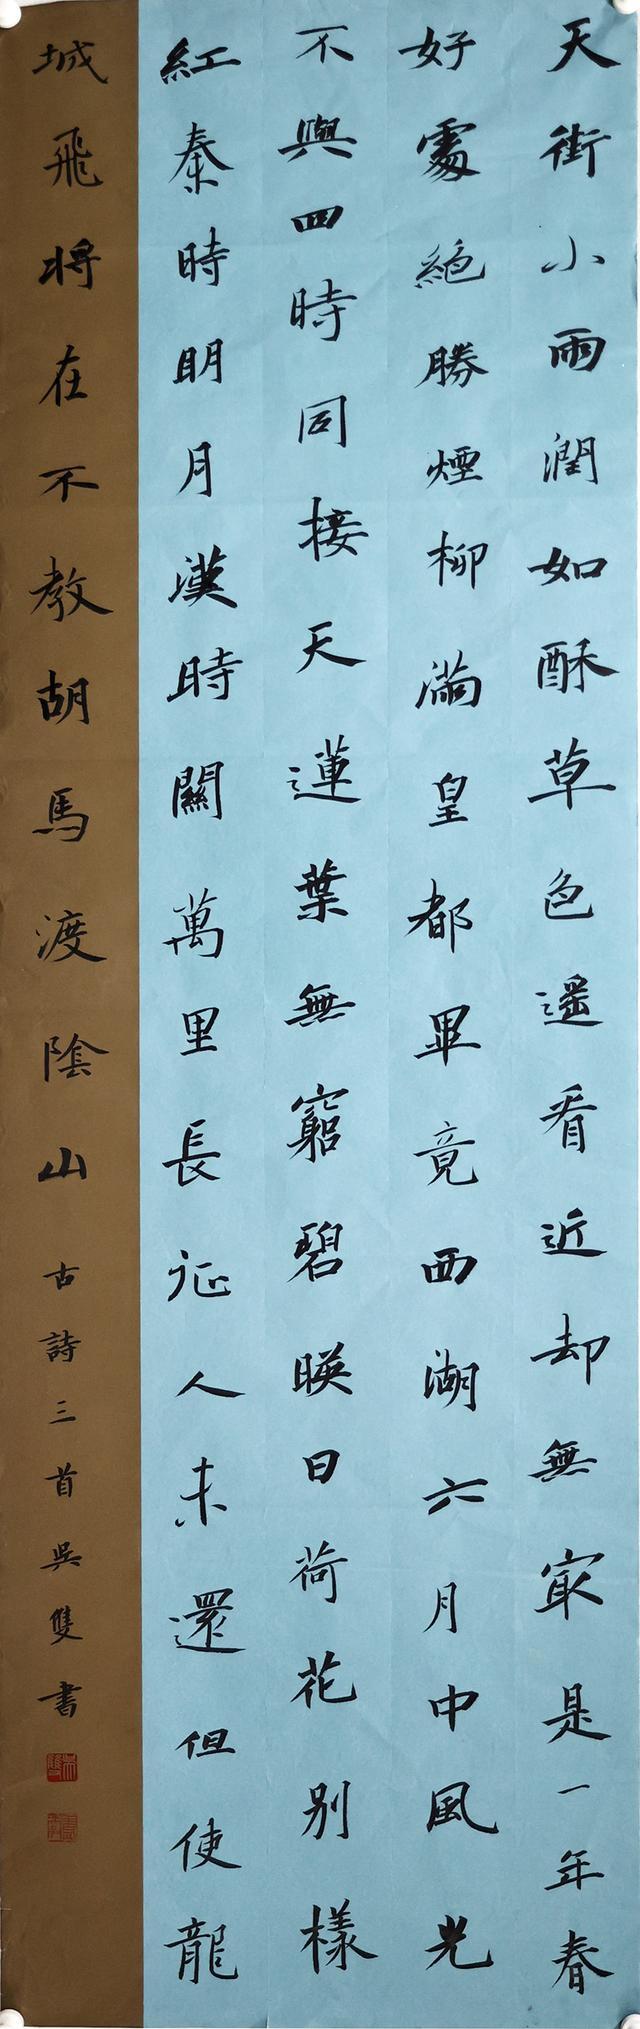 天街小雨潤如酥草色遥看近却無冣是一年春
好處絕勝煙柳滿皇都畢竟西湖六月中風光
不與四時同接天蓮葉無窮碧映日荷花别樣
紅秦時明月漢時關萬里長征人未還但使龍
城飛將在不教胡馬渡陰山
古詩三首吳雙書